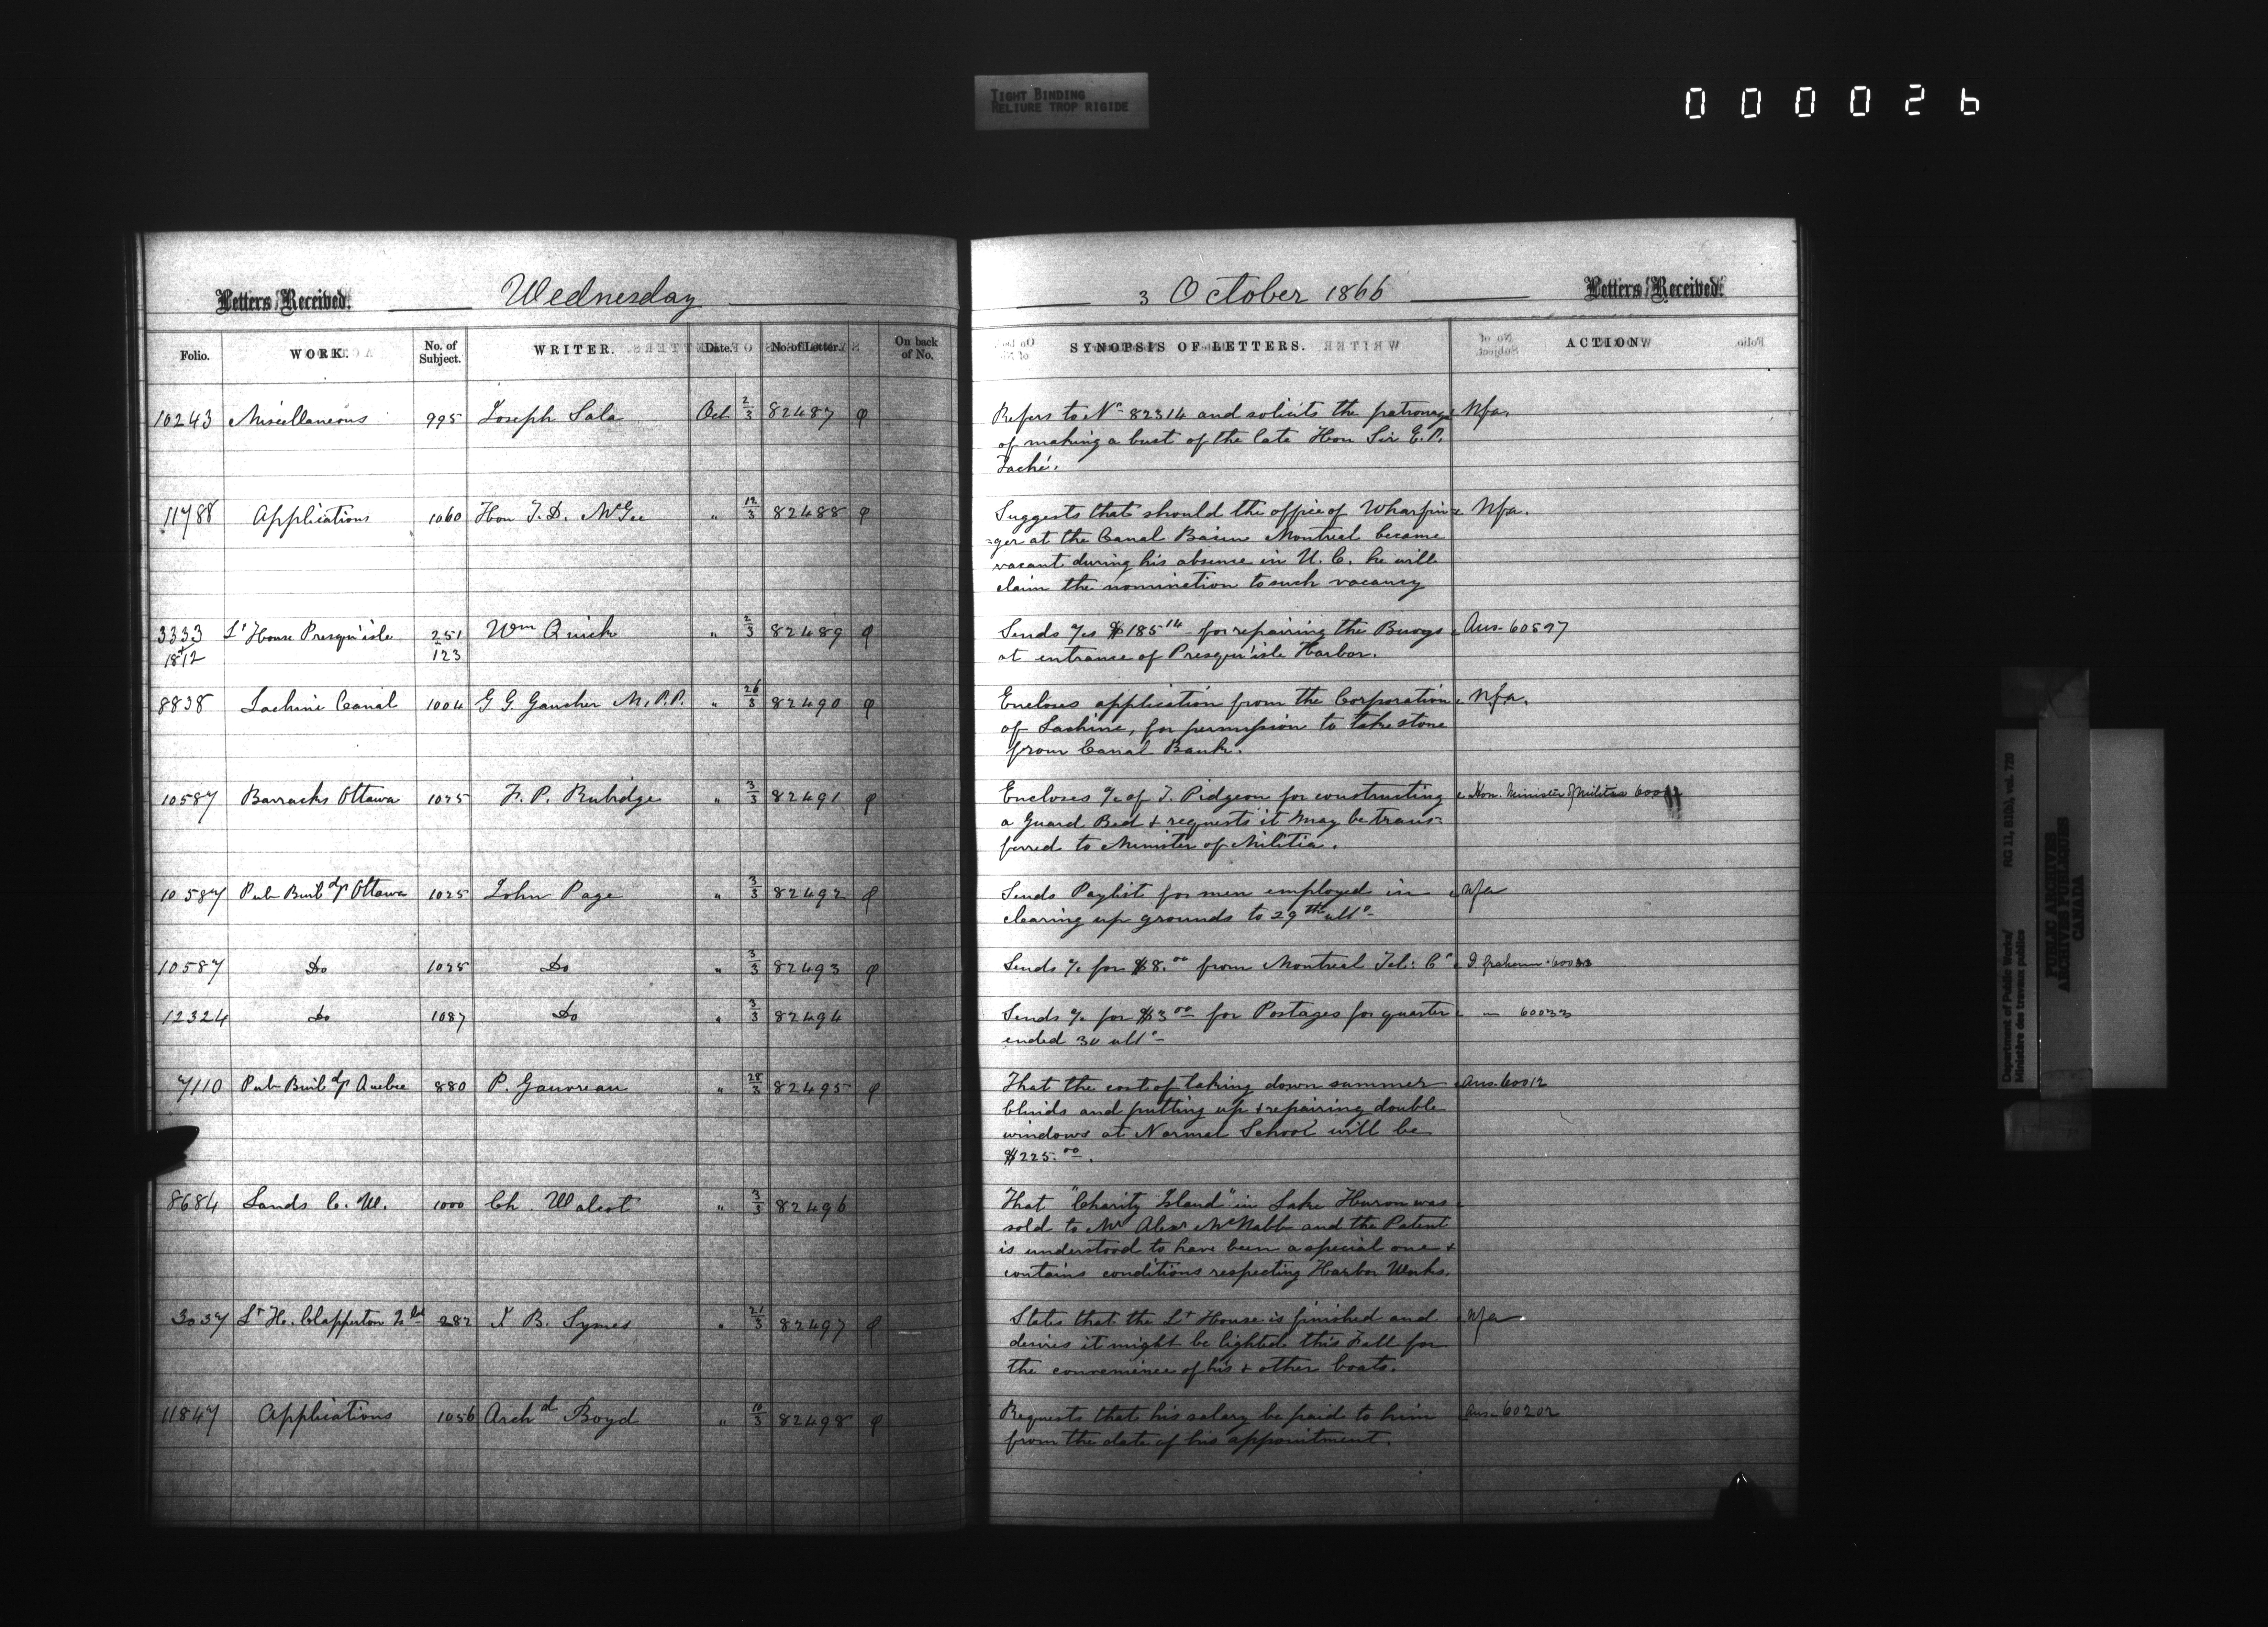 TIGHT BINDING
RELIURE TROP RIGIDE
000026
Letters Received. Wednesday
Folio. WORK. No. of Subject. WRITER. Date. No. of Letter. On back of No.
10243 Miscellaneous 995 Joseph Sala Oct 2/3 82487
11788 Applications 1060 Hon T. D. McGee " 12/3 82488
3333 Lt House Presqu'isle 251 Wm Quick " 2/3 82489
1812 123
8838 Lachine Canal 1004 G G Gaucher M.P.P. " 26/3 82490
10587 Barracks Ottawa 1025 F. P. Rubidge " 3/3 82491
10587 Pub Buildgs Ottawa 1025 John Page " 3/3 82492
10587 Do 1025 Do " 3/3 82493
12324 Do 1087 Do " 3/3 82494
7110 Pub Buildgs Quebec 880 P. Gauvreau " 28/3 82495
8684 Lands C. W. 1000 Ch. Walcot " 3/3 82496
3037 Lt H. Clapperton Isld 282 B. Symes " 21/3 82497
11847 Applications 1056 Archd Boyd " 10/3 82498
3 October 1866 Letters Received.
SYNOPSIS OF LETTERS. ACTION
Refers to No 82314 and solicits the patronage Nfa.
of making a bust of the late Hon Sir E. P.
Taché.
Suggests that should the office of Wharfin= Nfa.
=ger at the Canal Basin Montreal became
vacant during his absence in U. C. he will
claim the nomination to such vacancy
Sends a/cs $185 14 for repairing the Buoys Ans. 60597
at entrance of Presqu'isle Harbor.
Encloses application from the Corporation Nfa.
of Lachine, for permission to take stone
from Canal Bank.
Encloses a/c of J. Pidgeon for constructing Hon. Minister of Militia
a Guard Bed & requests it may be trans=
ferred to Minister of Militia.
Sends Paylist for men employed in Nfa
clearing up grounds to 29th ulto
Sends a/c for $8.00 from Montreal Tel: Co
Sends a/c for $3 00 for Postages for quarter 60033
ended 30 ulto
That the cost of taking down summer Ans. 60012
blinds and putting up & repairing double
windows at Normal School will be
$225.00.
That "Charity Island" in Lake Huron was
sold to Mr Alexr McNabb and the Patent
is understood to have been a special one &
contains conditions respecting Harbor Works.
States that the Lt House is finished and Nfa
desires it might be lighted this Fall for
the convenience of his & other boats.
Requests that his salary be paid to him Ans. 60202
from the date of his appointment.
Department of Public Works/ RG 11, B1(b), vol. 720
Ministère des travaux publics
PUBLIC ARCHIVES
ARCHIVES PUBLIQUES
CANADA